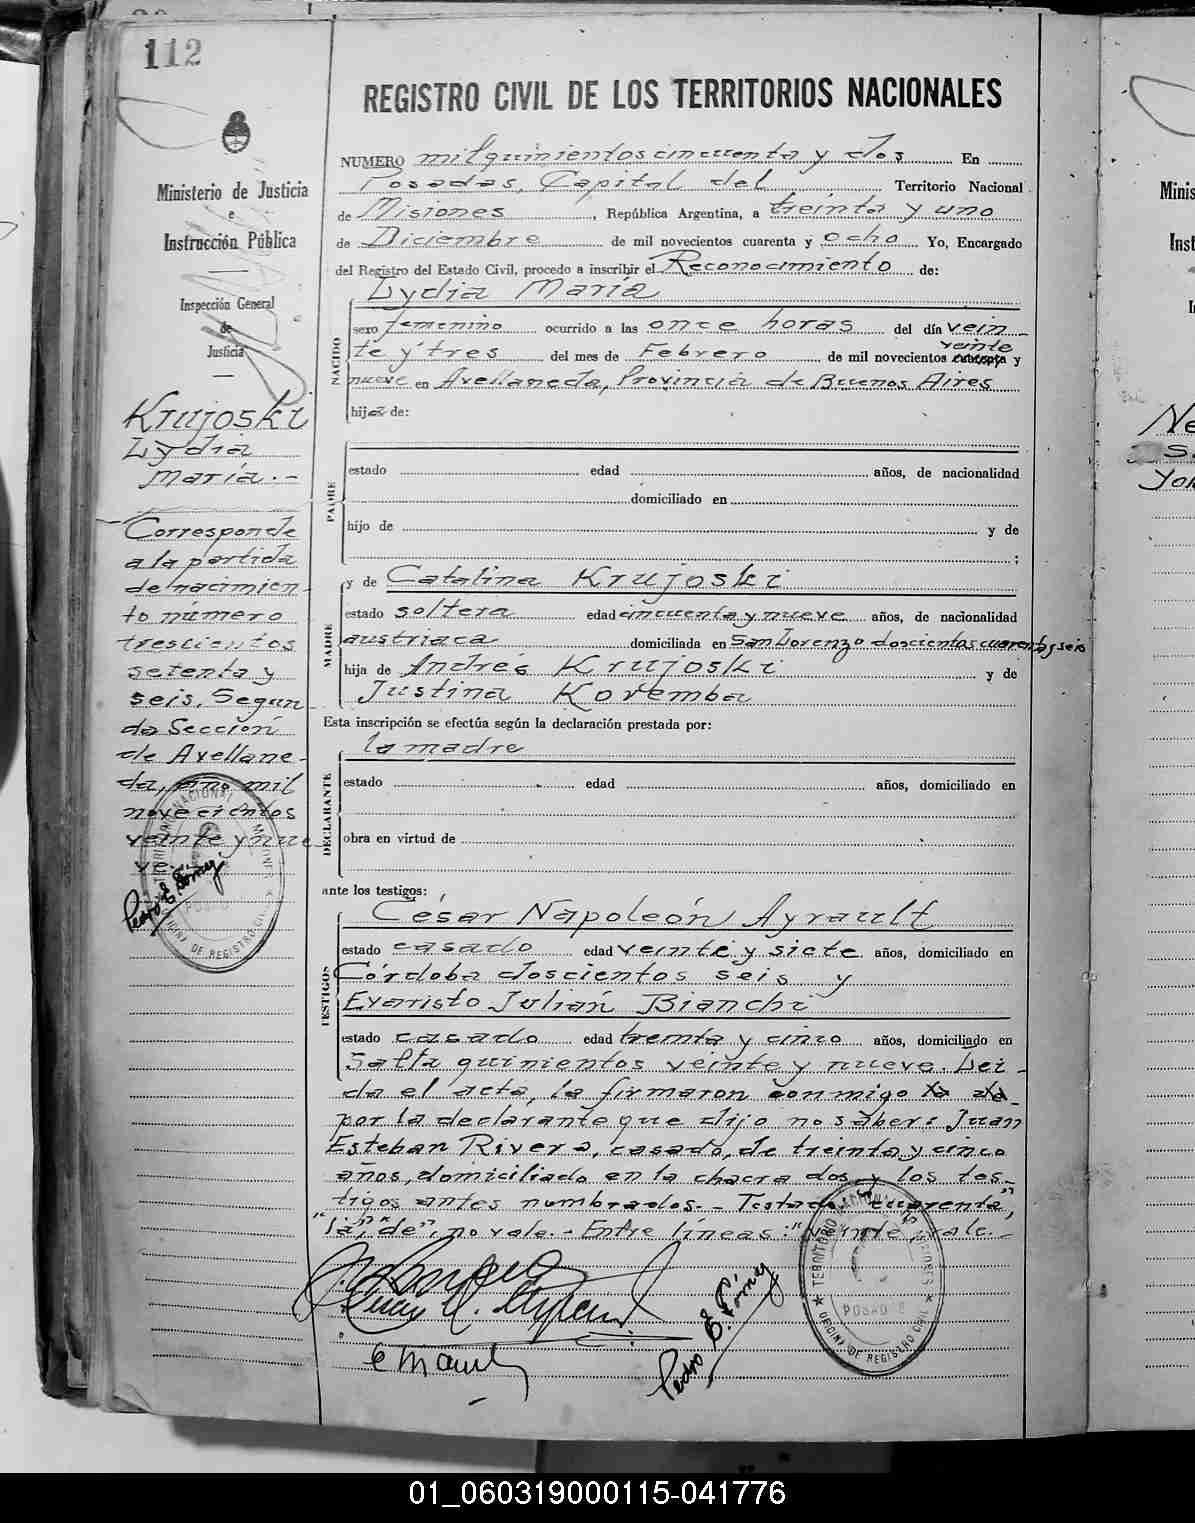 112
Ministerio de Justicia
e
Instrucción Pública
Inspección General
de
Justicia
Krujoski
Lydia
María.-
Corresponde
a la partida
de nacimien
to número
trescientos
setenta y
seis, Segun
da Sección
de Avellane-
da, año mil
novecientos
veinte y nue
Pedro E. Gómez
REGISTRO CIVIL DE LOS TERRITORIOS NACIONALES
NUMERO milquinientos cincuenta y dos En
Posadas, Capital del Territorio Nacional
de Misiones, República Argentina, a treinta y uno
de Diciembre de mil novecientos cuarenta y ocho Yo, Encargado
del Registro del Estado Civil, procedo a inscribir el Reconocimiento de:
NACIDO
Lydia María
sexo femenino ocurrido a las once horas del día vein
veinte
te y tres del mes de Febrero de mil novecientos cuarenta y
nueve en Avellaneda, Provincia de Buenos Aires
hija de:
PADRE
estado edad años, de nacionalidad
domiciliado en
hijo de y de
;
MADRE
y de Catalina Krujoski
estado soltera edad cincuenta y nueve años, de nacionalidad
austriaca domiciliada en San Lorenzo doscientos cuarenta y seis
hija de Andrés Krujoski y de
Justina Koremba
Esta inscripción se efectúa según la declaración prestada por:
DECLARANTE
la madre
estado edad años, domiciliado en
obra en virtud de
ante los testigos:
TESTIGOS
César Napoleón Ayrault
estado casado edad veinte y siete años, domiciliado en
Córdoba doscientos seis y
Evaristo Julián Bianchi
estado casado edad treinta y cinco años, domiciliado en
Salta quinientos veinte y nueve. Lei-
da el acta, la firmaron conmigo
por la declarante que dijo no saber: Juan
Esteban Rivera, casado, de treinta y cinco
años, domiciliado en la chacra dos y los tes-
tigos antes nombrados.- Testado: "cuarenta",
"la", "de", no vale.- Entre líneas: "veinte", vale.-
Pedro E. Gómez
TERRITORIO NACIONAL DE MISIONES
POSADAS
OFICINA DE REGISTRO CIVIL
01_060319000115-041776